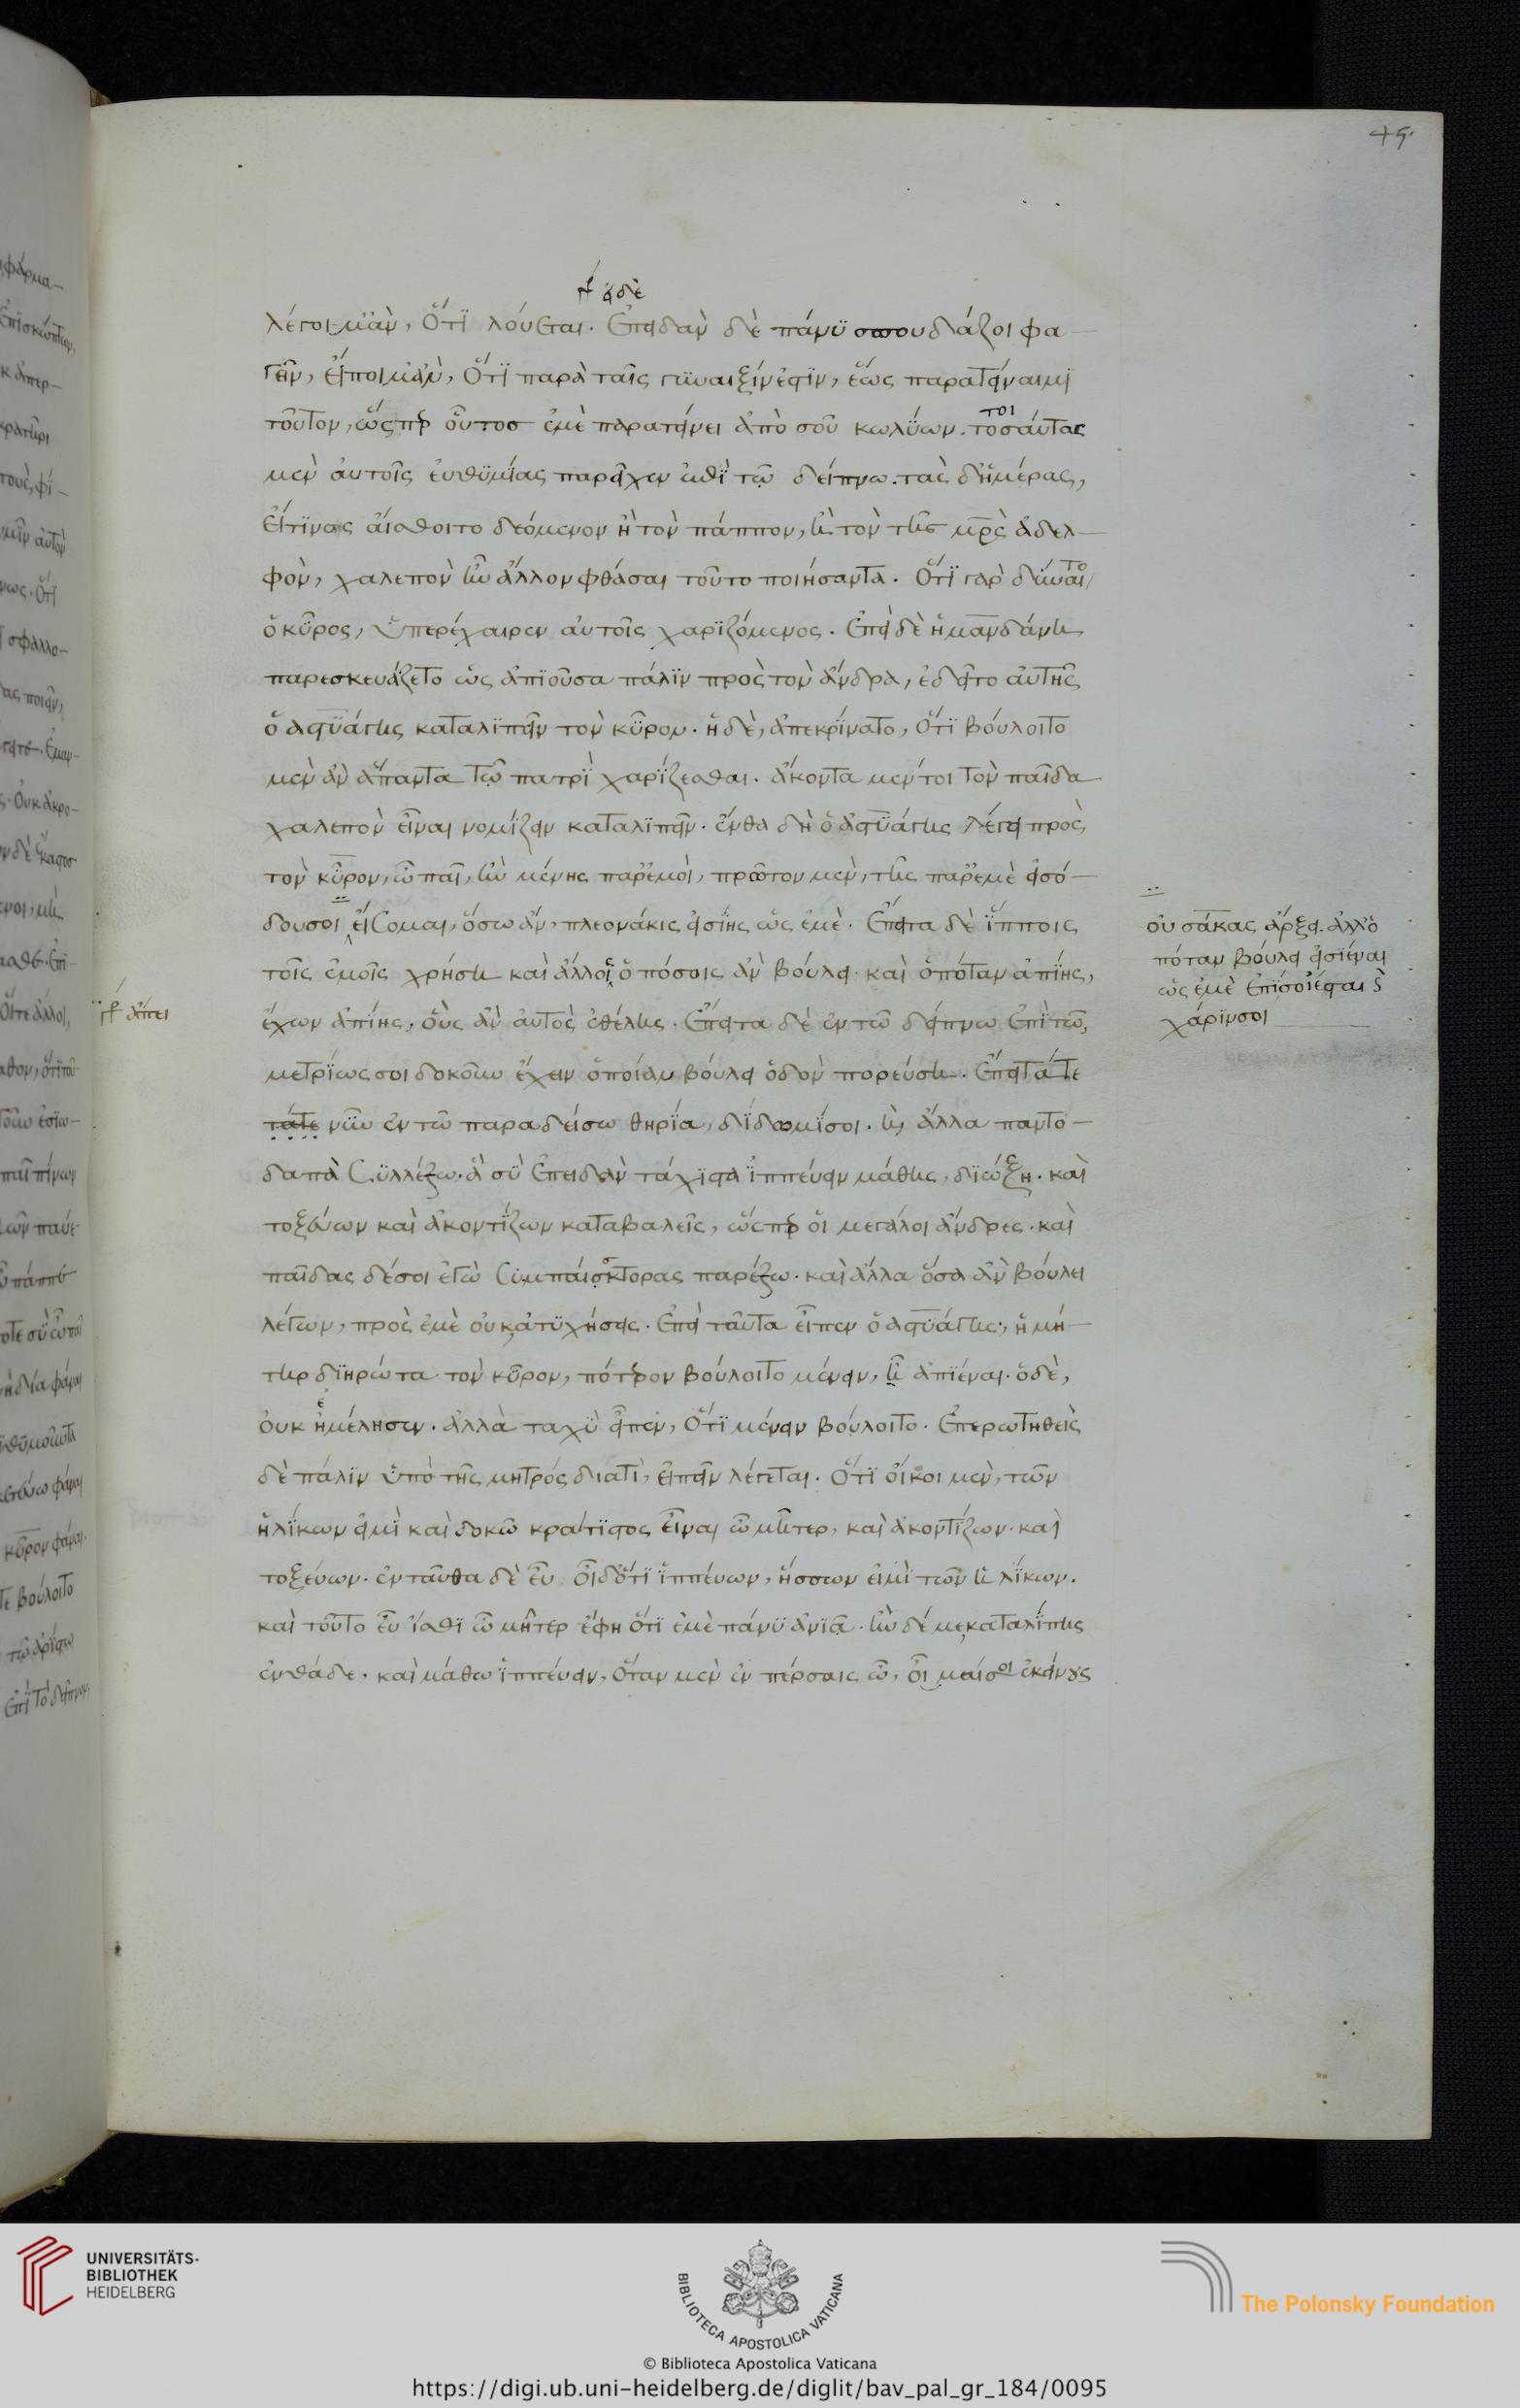 45.
γρ ὁδὲ
λέγοιμ' ἂν, ὅτι λούεται. ἐπειδὰν δὲ πάνυ σπουδάζοι φα
γεῖν, εἴποιμ' ἂν, ὅτι παρὰ ταῖς γυναιξίν ἐστιν, ἕως παρατείναιμι
τοῦτον, ὥσπερ οὗτος ἐμὲ παρατείνει ἀπὸ σοῦ κωλύων. τοσαύτας
τοι
μὲν αὐτοῖς εὐθυμίας παρεῖχεν ἐπὶ τῶ δείπνω. τὰς δ' ἡμέρας,
εἴ τινος αἴσθοιτο δεόμενον ἢ τὸν πάππον, ἢ τὸν τῆς μρς ἀδελ
φὸν, χαλεπὸν ἦν ἄλλον φθάσαι τοῦτο ποιήσαντα. ὅτι γὰρ δύναιτο
ὁ κῦρος, ὑπερέχαιρεν αὐτοῖς χαριζόμενος. ἐπεὶ δὲ ἡ μανδάνη
παρεσκευάζετο ὡς ἀπιοῦσα πάλιν πρὸς τὸν ἄνδρα, ἐδεῖτο αὐτῆς
ὁ ἀστυάγης καταλιπεῖν τὸν κῦρον. ἡ δὲ, ἀπεκρίνατο, ὅτι βούλοιτο
μὲν ἂν ἅπαντα τῶ πατρὶ χαρίζεσθαι. ἄκοντα μέντοι τὸν παῖδα
χαλεπὸν εἶναι νομίζειν καταλιπεῖν. ἔνθα δὴ ὁ ἀστυάγης λέγει πρὸς
τὸν κῦρον, ὦ παῖ, ἢν μένης παρ' ἐμοὶ, πρῶτον μὲν, τῆς παρ' ἐμὲ εἰσό
δου σοι εἴσομαι, ὅσω ἂν, πλεονάκις εἰσίης ὡς ἐμὲ. ἔπειτα δὲ ἵπποις
οὐ σάκας ἄρξει. ἀλλ' ὁ
πόταν βούλει εἰσιέναι
ὡς ἐμὲ ἐπὶ σοὶ ἔσται καὶ
χάριν σοι
τοῖς ἐμοῖς χρήση καὶ ἄλλοις ὁπόσοις ἂν βούλει. καὶ ὁπόταν ἀπίης,
γρ ἄπει
ἔχων ἀπίης, οὓς ἂν αὐτὸς ἐθέλης. ἔπειτα δὲ ἐν τῶ δείπνω ἐπὶ τῶ,
μετρίως σοι δοκοῦν ἔχειν ὁποίαν βούλει ὁδὸν πορεύση. ἔπειτα τά τε
τάτε νῦν ἐν τῶ παραδείσω θηρία, δίδωμί σοι. καὶ ἄλλα παντο
δαπὰ συλλέξω. ἃ σὺ ἐπειδὰν τάχιστα ἱππεύειν μάθης, διώξη. καὶ
τοξεύων καὶ ἀκοντίζων καταβαλεῖς, ὥσπερ οἱ μεγάλοι ἄνδρες. καὶ
παῖδας δέ σοι ἐγὼ συμπαίστορας παρέξω. καὶ ἄλλα ὅσα ἂν βούλει
λέγων, πρὸς ἐμὲ οὐκ ἀτυχήσεις. ἐπεὶ ταῦτα εἶπεν ὁ ἀστυάγης, ἡ μή
τηρ διηρώτα τὸν κῦρον, πότερον βούλοιτο μένειν, ἢ ἀπιέναι. ὁ δὲ,
οὐκ ἠμέλησεν. ἀλλὰ ταχὺ εἶπεν, ὅτι μένειν βούλοιτο. ἐπερωτηθεὶς
δὲ πάλιν ὑπὸ τῆς μητρός διατὶ, εἰπεῖν λέγεται. ὅτι οἴκοι μὲν, τῶν
ἡλίκων εἰμὶ καὶ δοκῶ κράτιστος εἶναι ὦ μῆτερ, καὶ ἀκοντίζων. καὶ
τοξεύων. ἐνταῦθα δὲ εὖ οἶδ' ὅτι ἱππεύων, ἥσσων εἰμὶ τῶν ἡλίκων.
καὶ τοῦτο εὖ ἴσθι ὦ μῆτερ ἔφη ὅτι ἐμὲ πάνυ ἀνιᾶ. ἢν δέ με καταλίπης
ἐνθάδε, καὶ μάθω ἱππεύειν, ὅταν μὲν ἐν πέρσαις ὦ, οἶμαί σοι ἐκείνους
UNIVERSITÄTS-
BIBLIOTHEK
HEIDELBERG
BIBLIOTECA APOSTOLICA VATICANA
The Polonsky Foundation
© Biblioteca Apostolica Vaticana
https://digi.ub.uni-heidelberg.de/diglit/bav_pal_gr_184/0095